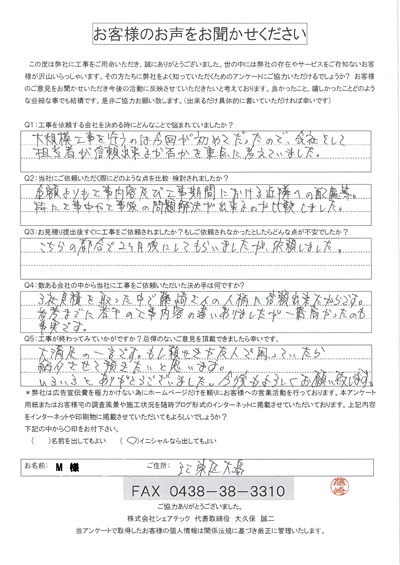 お客様のお声をお聞かせください
この度は弊社に工事をご用命いただき、誠にありがとうございました。世の中には弊社の存在やサービスをご存知ないお客
様が沢山いらっしゃいます。その方たちに弊社をよく知っていただくためのアンケートにご協力いただけるでしょうか？ お客様
のご意見をお聞かせいただき今後の活動に反映させていただきたいと考えております。良かったこと、嬉しかったことどのよう
な些細な事でも結構です。是非ご協力お願い致します。（出来るだけ具体的に書いていただければ幸いです）
Q1：工事を依頼する会社を決める時にどんなことで悩まれていましたか？
大規模工事を行うのは今回が初めてだったので、会社として
担当者が信頼出来るか否かを重点に考えていました。
Q2：当社にご依頼いただく際にどのような点を比較・検討されましたか？
金額よりも工事内容及び工事期間における近隣への配慮等。
特に工事中や工事後の問題解決が出来るのか比較しました。
Q3：お見積り提出後すぐに工事をご依頼されましたか？もしご依頼されなかったとしたらどんな点が不安でしたか？
こちらの都合で2ヶ月後にしてもらいましたが、依頼しました。
Q4：数ある会社の中から当社に工事をご依頼いただいた決め手は何ですか？
3社見積を取った中で藤崎さんの人柄が信頼出来たからです。
若干の工事内容の違いありましたが一番高かったのも
事実です。
Q5：工事が終わってみていかがですか？忌憚のないご意見を頂戴できましたら幸いです。
大満足の一言です。もし親せきや友人で困っていたら
紹介させて頂きたいと思います。
いろいろとありがとうございました。今後もよろしくお願い致します。
＊弊社は広告宣伝費を極力かけない為にホームページだけを頼りにお客様への営業活動を行っております。本アンケート
用紙またはお客様宅の調査風景や施工状況を随時ブログ形式のインターネットに掲載させていただいております。上記内容
をインターネットや印刷物に掲載させていただいてもよろしいでしょうか？
下記の中から〇印をお付け下さい。
（　）名前を出してもよい　（〇）イニシャルなら出してもよい
お名前： M 様　ご住所：
FAX 0438-38-3310
藤崎
ご協力ありがとうございました。
株式会社シェアテック 代表取締役 大久保 誠二
当アンケートで取得したお客様の個人情報は関係法規に基づき厳正に管理いたします。